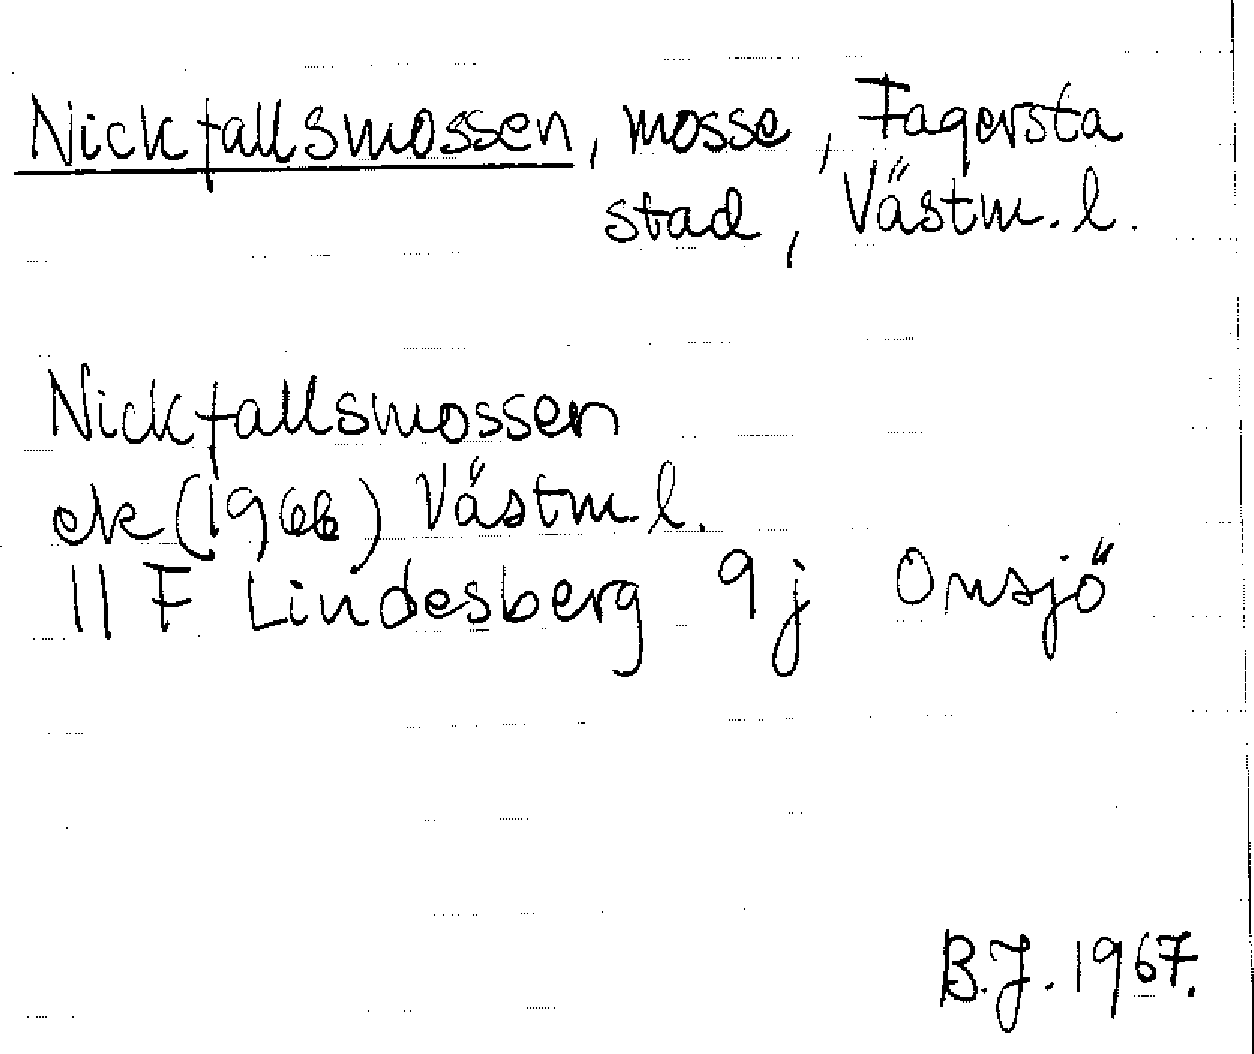 Nickfallsmossen, mosse, Fagersta
stad, Västm. l.
Nickfallsmossen
ek (1966) Västm l.
11 F Lindesberg 9j Onsjö
B.J. 1967.